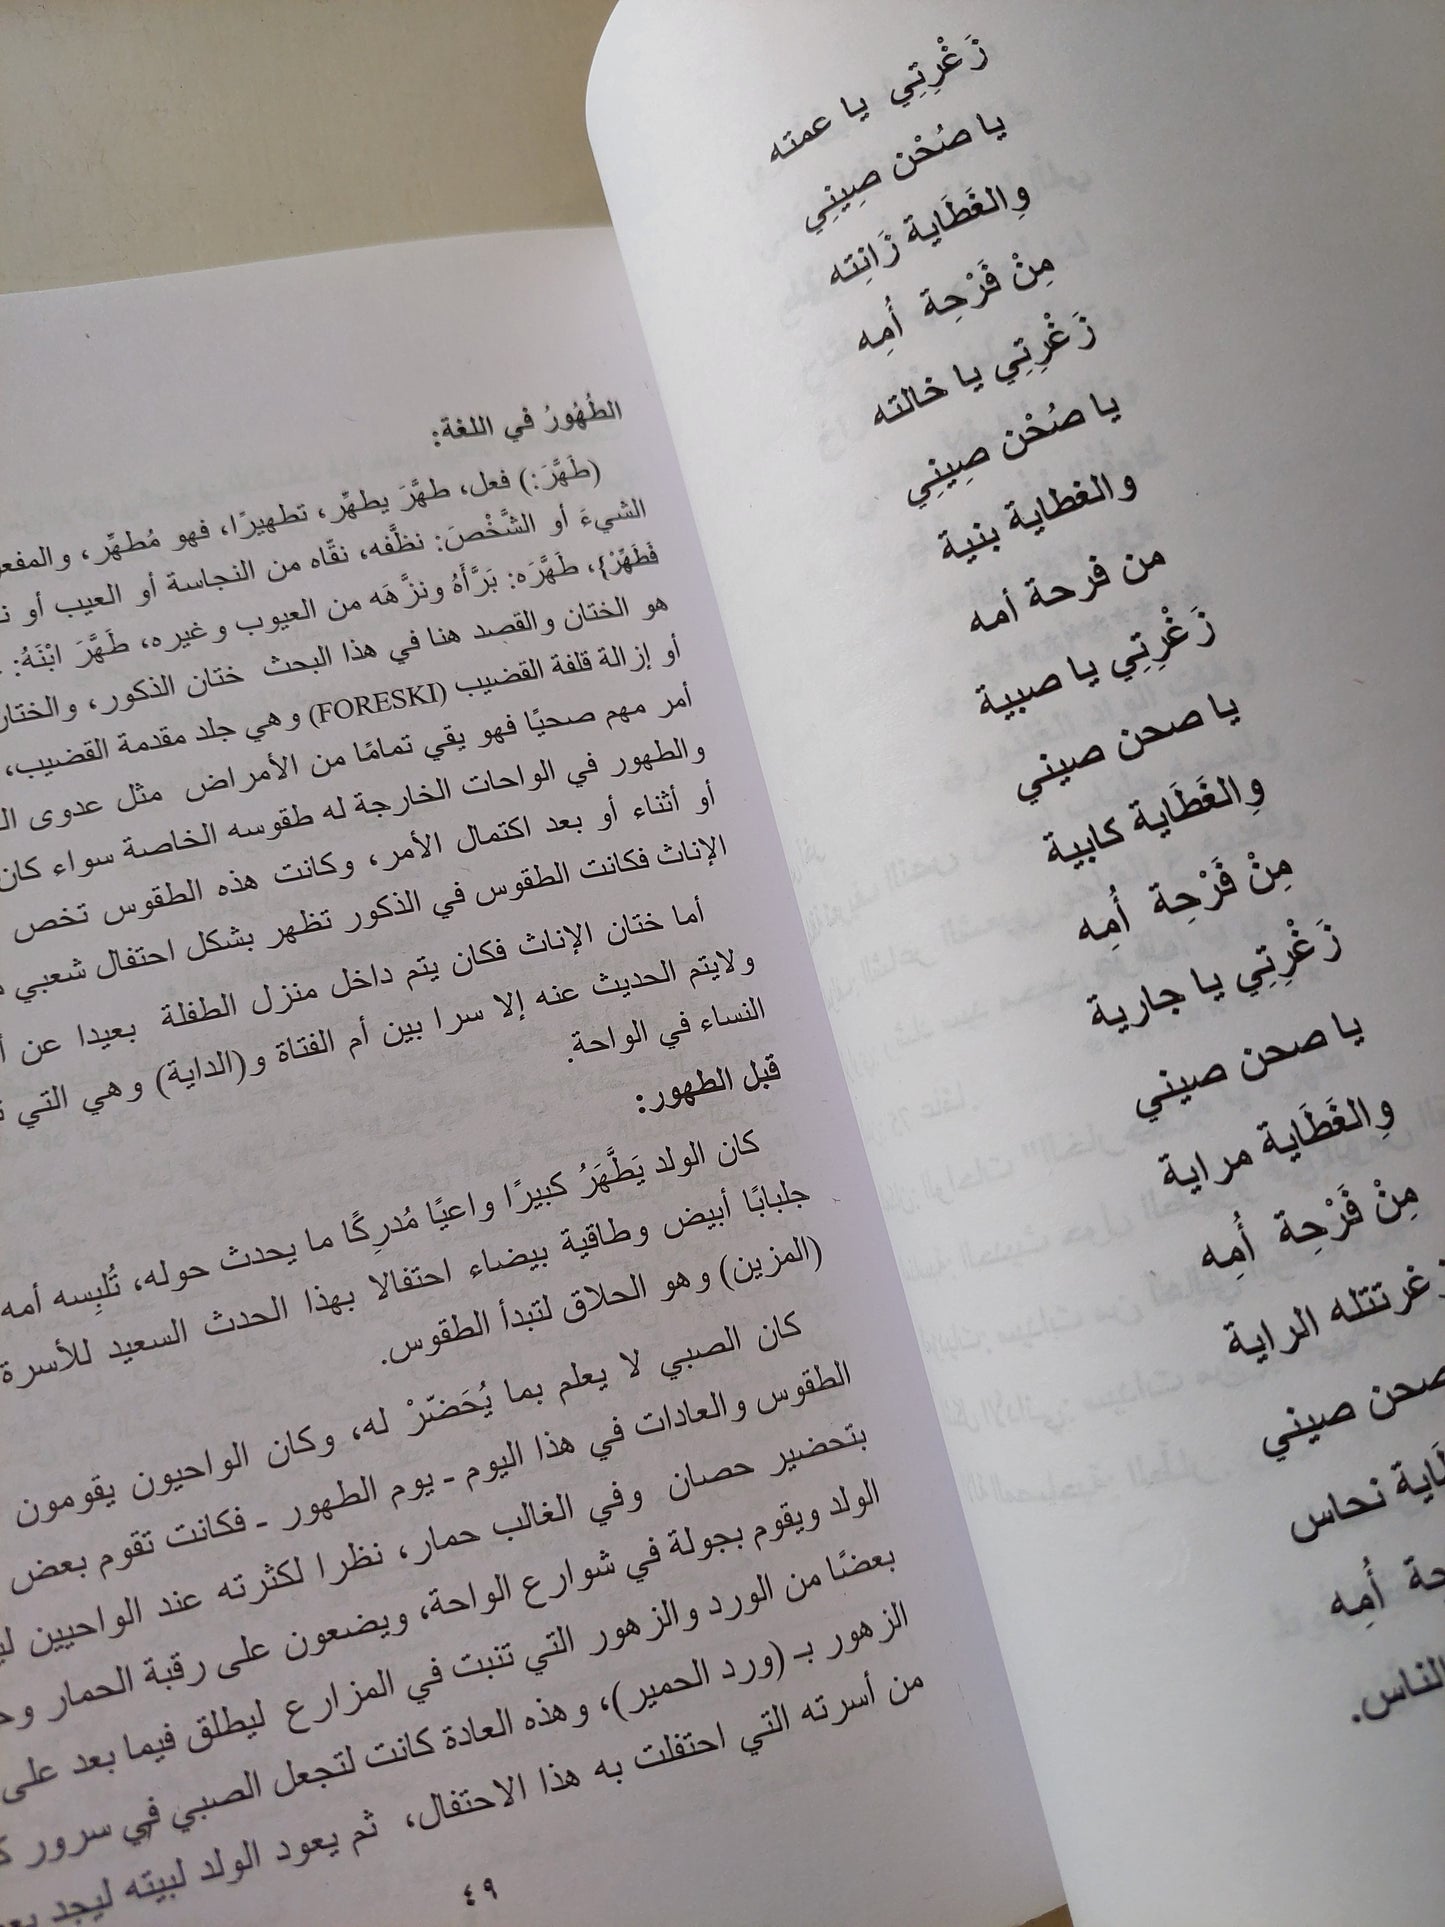 زَغْرِتِي يا عمته
يا صُحْن صِينِي
وِالغَطَاية زَانِته
مِنْ فَرْحِة أُمِه
زَغْرِتِي يا خالته
يا صُحْن صِينِي
والغطاية بنية
من فرحة أمه
زَغْرِتِي يا صبية
يا صحن صيني
وِالغَطَاية كابية
مِنْ فَرْحِة أُمِه
زَغْرِتِي يا جارية
يا صحن صيني
وِالغَطَاية مراية
مِنْ فَرْحِة أُمِه
الراية
صحن صيني
نحاس
أُمِه
الناس.
الطُهُورُ في اللغة:
(طَهَّرَ:) فعل، طهَّرَ يطهِّر، تطهيرًا، فهو مُطهِّر،
الشيءَ أو الشَّخْصَ: نظَّفه، نقَّاه من النجاسة أو العيب أو
فَطَهِّرْ}، طَهَّرَه: بَرَّأَهُ ونزَّهَه من العيوب وغيره، طَهَّرَ ابْنَهُ:
هو الختان والقصد هنا في هذا البحث ختان الذكور،
أو إزالة قلفة القضيب (FORESKI) وهي جلد مقدمة القضيب،
أمر مهم صحيًا فهو يقي تمامًا من الأمراض مثل عدوى
والطهور في الواحات الخارجة له طقوسه الخاصة سواء كان
أو أثناء أو بعد اكتمال الأمر، وكانت هذه الطقوس تخص
الإناث فكانت الطقوس في الذكور تظهر بشكل احتفال شعبي
أما ختان الإناث فكان يتم داخل منزل الطفلة بعيدا عن
ولايتم الحديث عنه إلا سرا بين أم الفتاة و(الداية) وهي التي
النساء في الواحة.
قبل الطهور:
كان الولد يَطَّهَرُ كبيرًا واعيًا مُدرِكًا ما يحدث حوله، تُلبِسه أمه
جلبابًا أبيض وطاقية بيضاء احتفالا بهذا الحدث السعيد للأسرة
(المزين) وهو الحلاق لتبدأ الطقوس.
كان الصبي لا يعلم بما يُحَضّرْ له، وكان الواحيون يقومون
الطقوس والعادات في هذا اليوم - يوم الطهور - فكانت تقوم بعض
بتحضير حصان وفي الغالب حمار، نظرا لكثرته عند الواحيين
الولد ويقوم بجولة في شوارع الواحة، ويضعون على رقبة الحمار
بعضًا من الورد والزهور التي تنبت في المزارع ليطلق فيما بعد على
الزهور بـ (ورد الحمير)، وهذه العادة كانت لتجعل الصبي في سرور
من أسرته التي احتفلت به هذا الاحتفال، ثم يعود الولد لبيته ليجد
٤٩